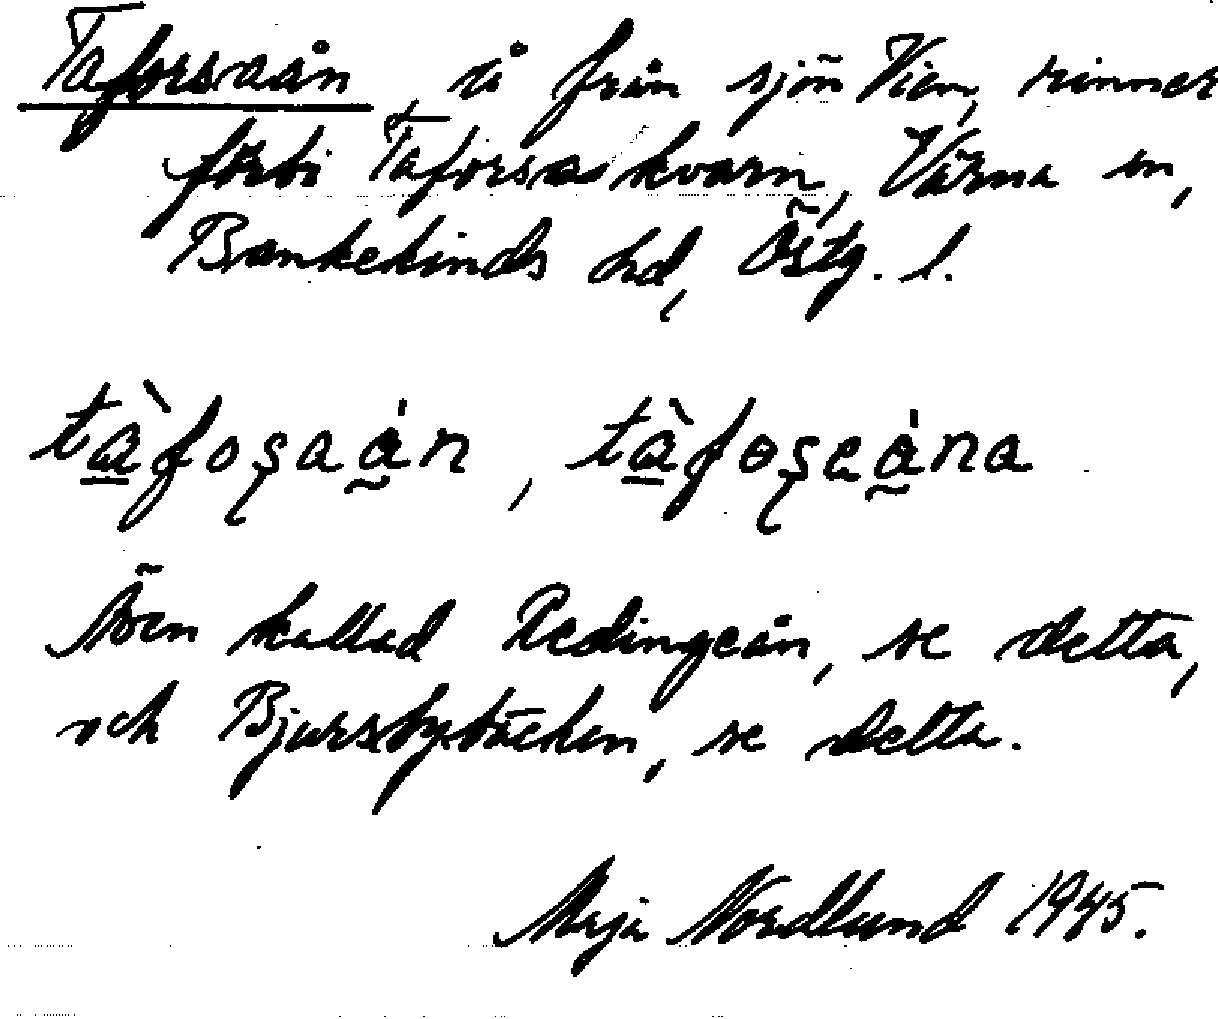 Taforsaån, å från sjön Vien, rinner
förbi Taforsa kvarn, Värna sn,
Bankekinds hd, Östg. l.
tàfoʂaån, tàfoʂeåna
Även kallad Redingeån, se detta,
och Bjursbybäcken, se detta.
Maja Nordlund 1945.